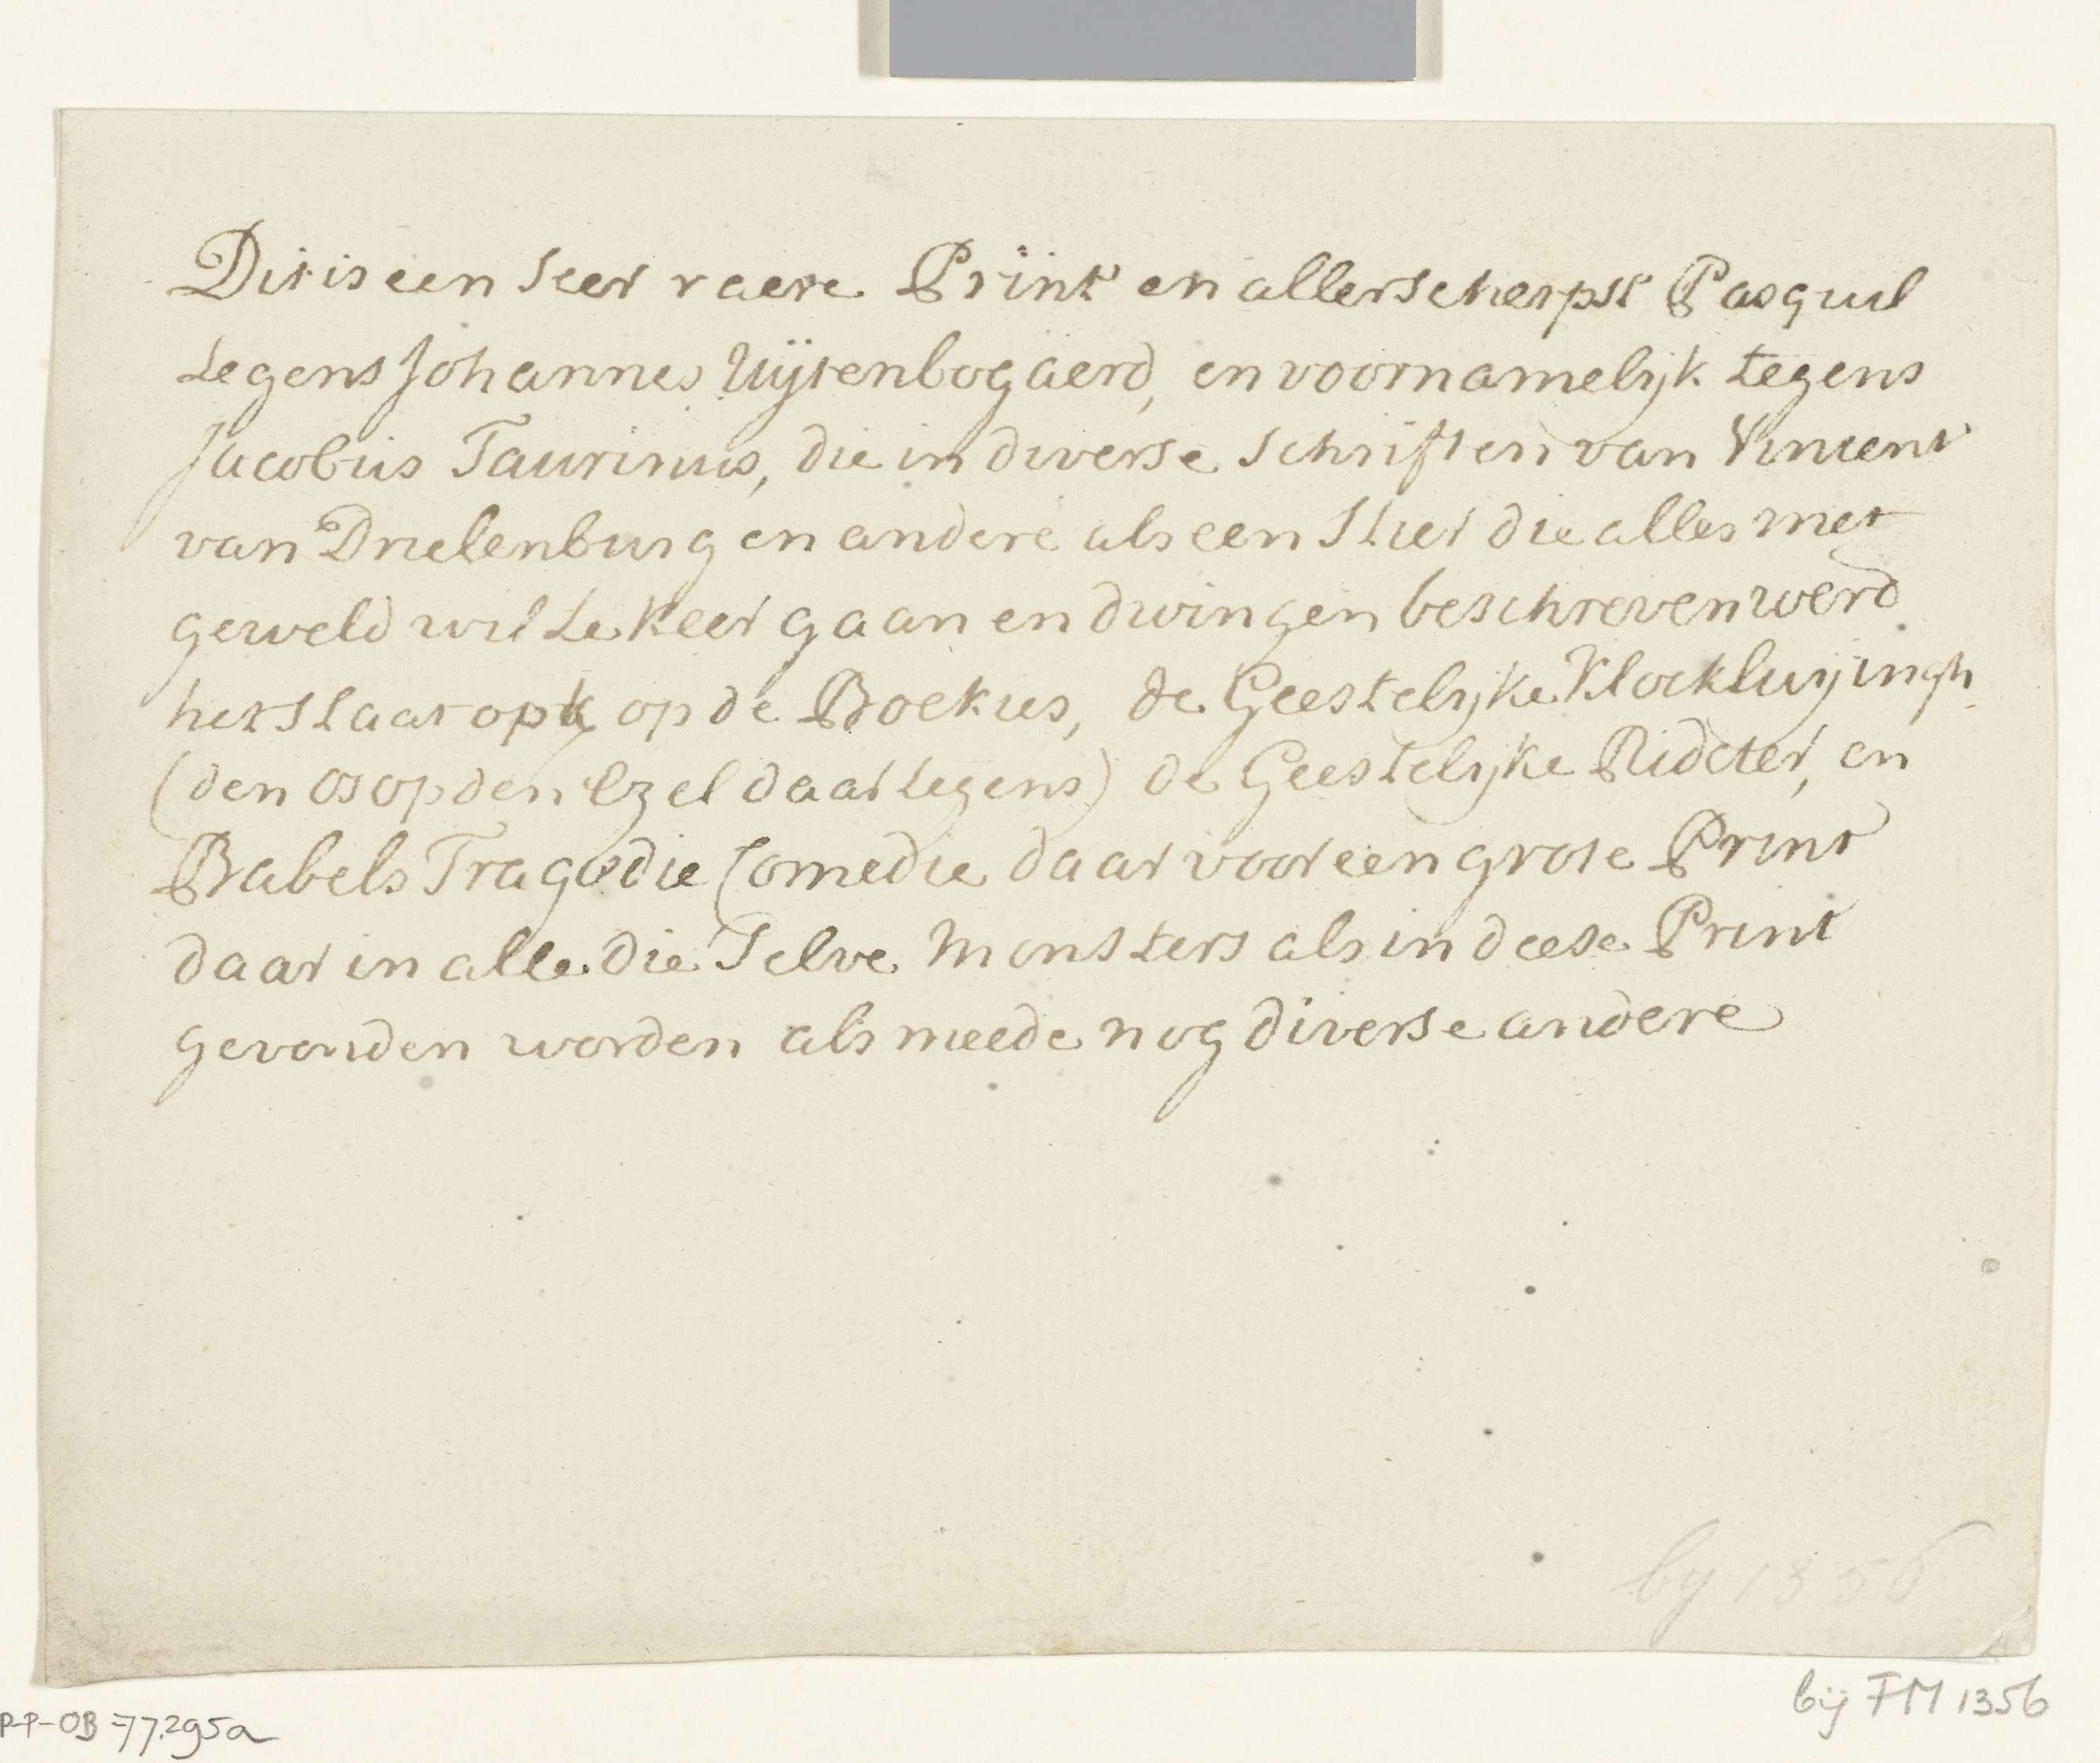 Dit is een seer raere Print en allerscherpst Pasquil
tegens Johannes Uÿtenbogaerd, en voornamelijk tegens
Jacobus Taurinus, die in diverse schriften van Vincent
van Drielenburg en andere als een Stier die alles met
geweld wil te keer gaan en dwingen beschreven werd
het slaat op op de Boekies, de Geestelijke Klockluyingh
(den os op den Ezel daar tegens) de Geestelijke Ridcter, en
Babels Tragedie Comedie daar voor een grote Print
daar in alle die selve Monsters als in deese Print
gevonden worden als meede nog diverse andere
by 1356
bij FM 1356
P-P-OB 77.295a